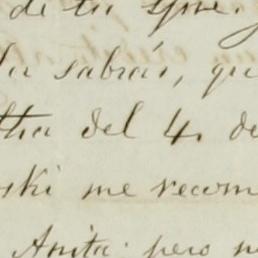 de tu
sabrás, qu
del 4. de
ski me recom
Anita: pero